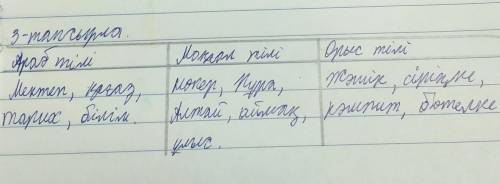 3-тапсырма.
Араб тілі Моңғол тілі Орыс тілі
Мектеп, қағаз, нөкер, Нұра, жәшік, сіріңке,
тарих, білім. Алтай, аймақ, кәмпит, бөтелке
ұлыс.